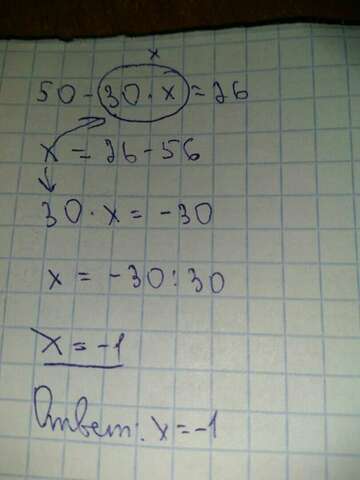 x
50-30·x=26
x=26-56
30·x=-30
x=-30:30
x=-1
Ответ: x=-1